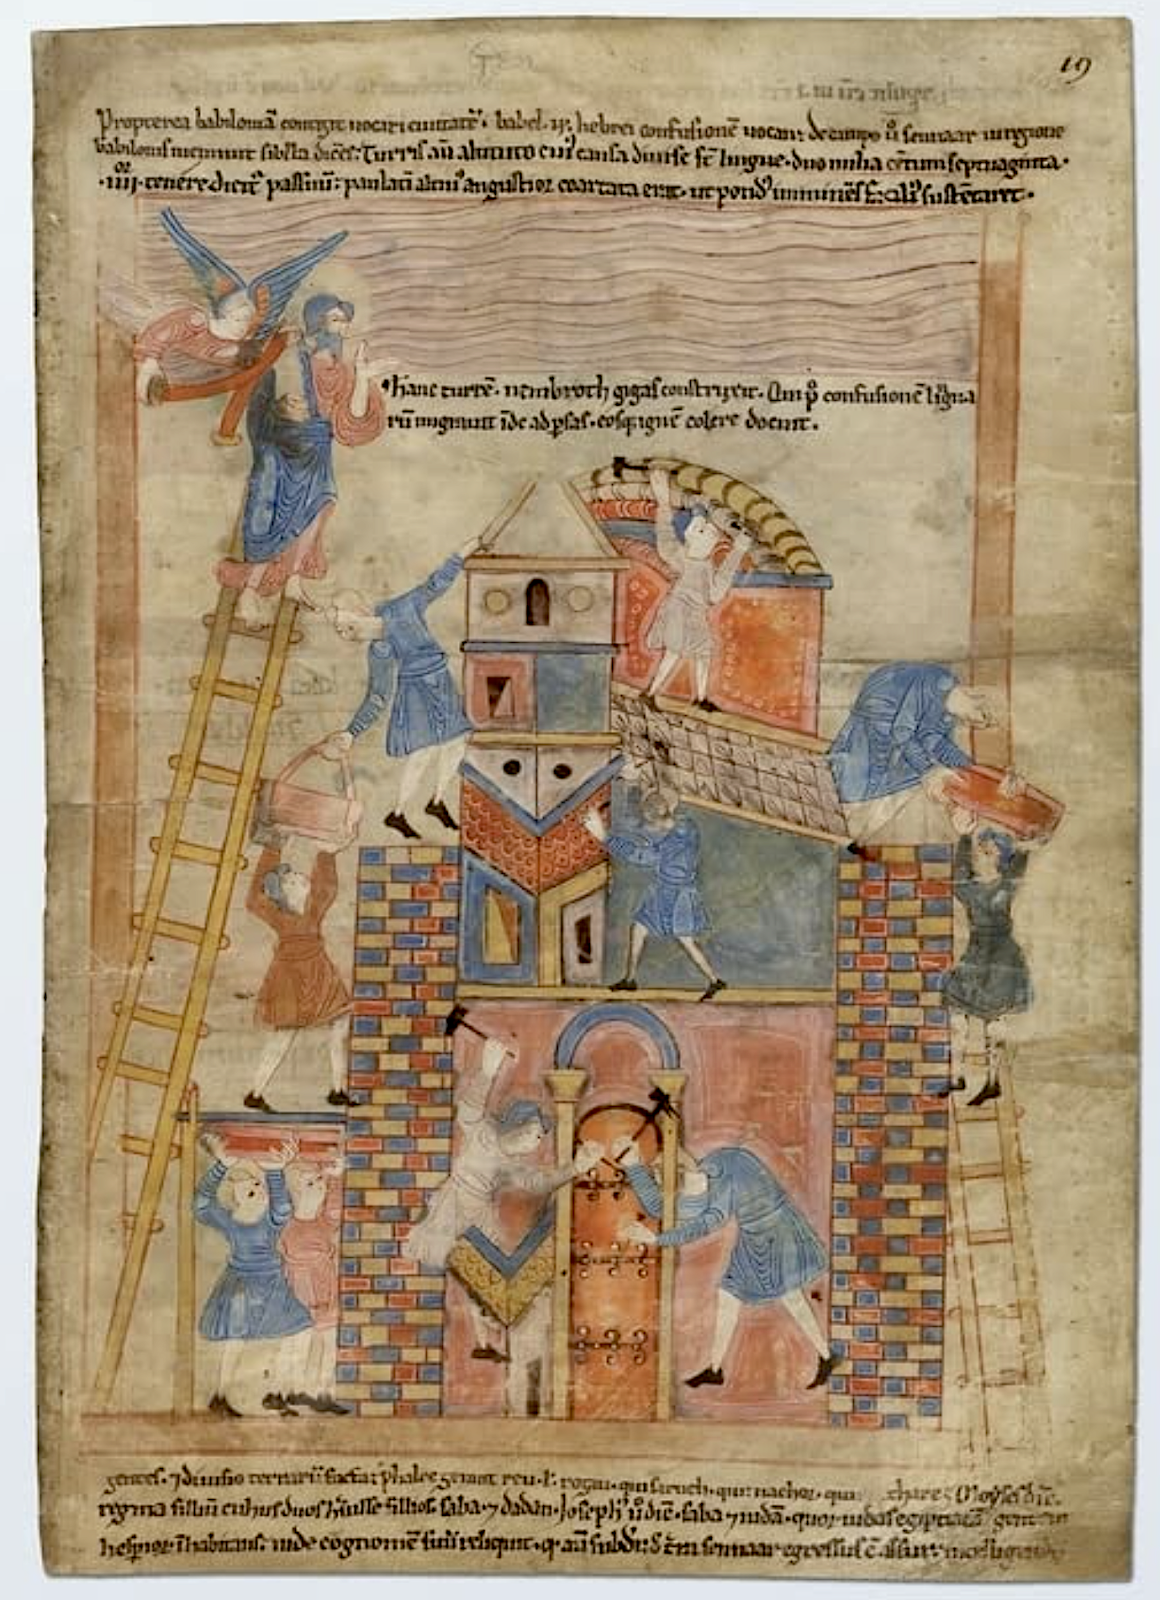 19
Propterea babiloniā contigit uocari ciuitatē. babel. n. hebrei confusionē uocant. De campo ū sennaar in regione
babilonis meminit sibilla dicēs: Turris aū altitudo cui causa diuise sē lingue. duo milia centum septuaginta.
.iiii. tenere dicit passuū: paulati altiꝰ angustior coartata erat. ut pondꝰ imminēs
hanc turrē. nembroth gigas construxit. Qui p̄ confusionē ligua
rū migrauit īde ad psas. eosq; ignē colere docuit.
gentes. ⁊ diuisio terrarū facta. phalec genuit reu. ragau. qui saruch. qui nachor. qui thare. Moyses diē.
regma filiū chus duos hūisse filios. saba. ⁊ dadan. Joseph ū diē. saba ⁊ iudā. quor iudas egiptiacā gente in
hespior īhabitans. inde cognomē suis reliquit. terra sennaar egressus ē. assur